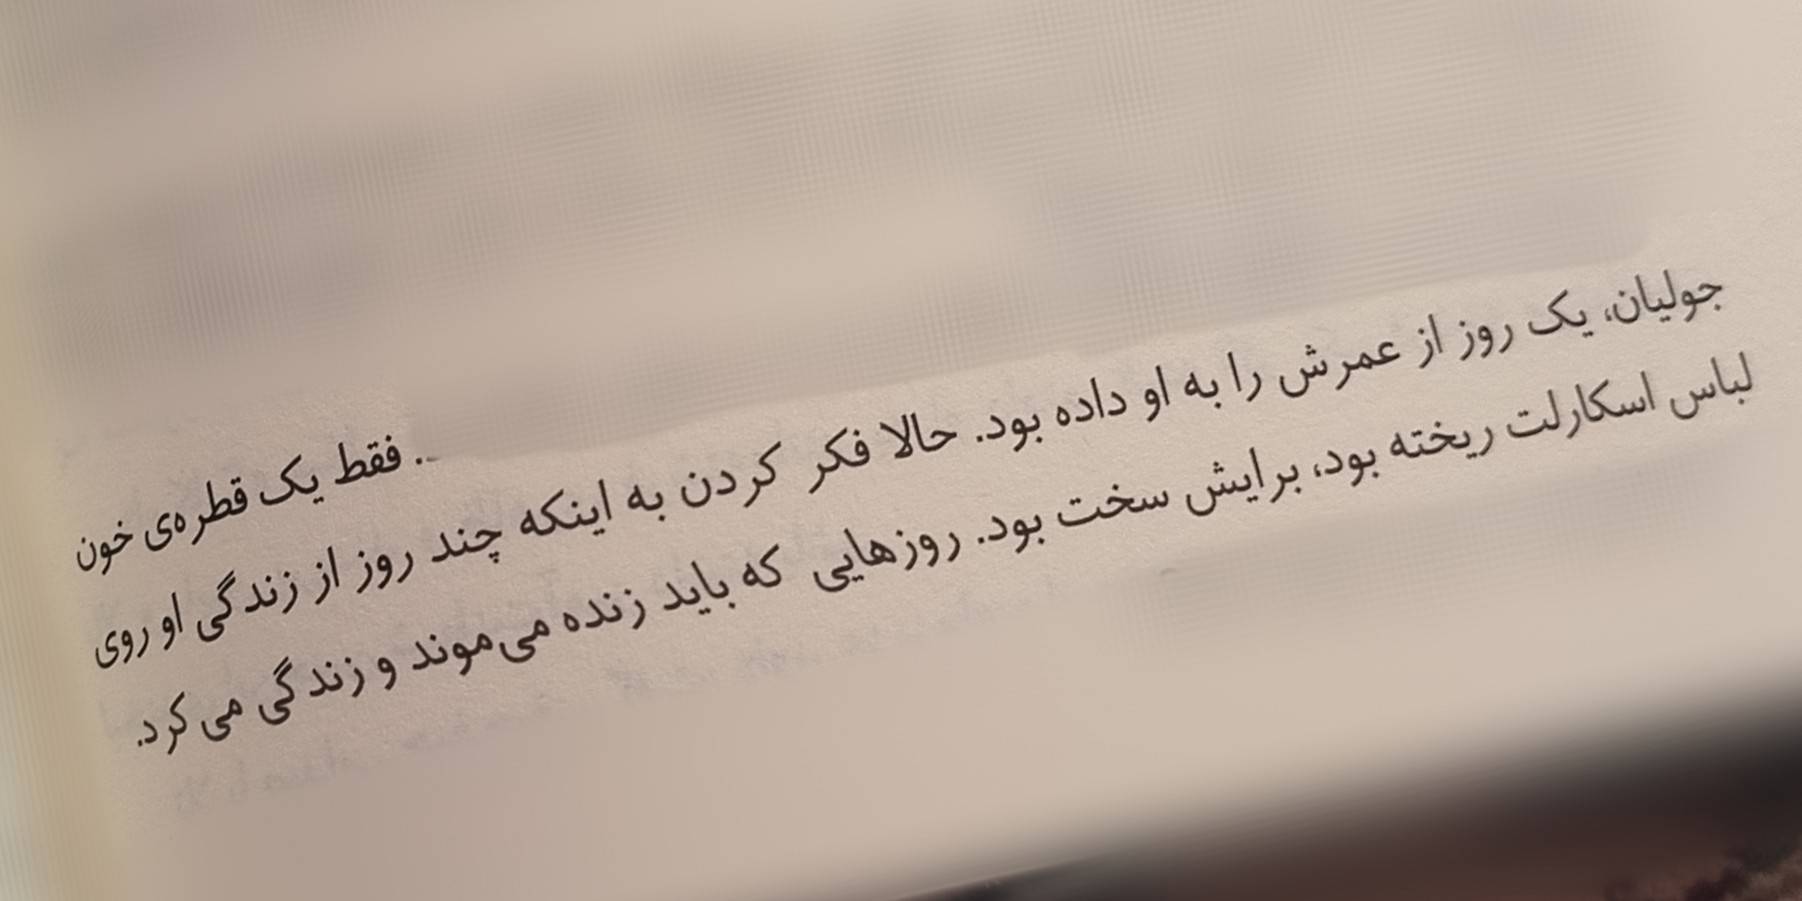 .. فقط یک قطره‌ی خون
جولیان، یک روز از عمرش را به او داده بود. حالا فکر کردن به اینکه چند روز از زندگی او روی
لباس اسکارلت ریخته بود، برایش سخت بود. روزهایی که باید زنده می‌موند و زندگی می‌کرد.